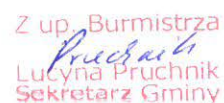 Z up. Burmistrza
Pruchnik
Lucyna Pruchnik
Sekretarz Gminy